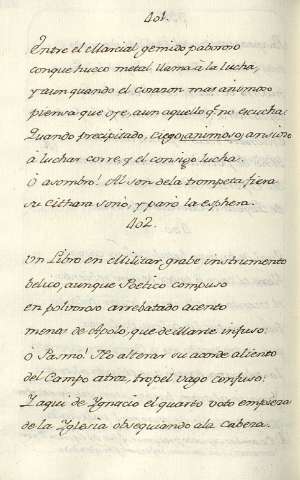 401.
Entre el Marcial gemido paboroso
conque hueco metal llama à la lucha,
y aun quando el corazon mas animoso
piensa que oye, aun aquello q.e no escucha:
Quando precipitado, ciego, animoso, ansioso
à luchar corre, y el consigo lucha.
O asombro! Al son de la trompeta fiera
su Cithara sonò, y parò la esphera.
402.
Un Libro en Militar, grabe instrumento
belico, aunque Poetico compuso
en polvoroso arrebatado acento
menos de Apolo, que de Marte infuso.
O Pasmo! No alterar su acorde aliento
del Campo atroz, tropel vago confuso:
Y aqui de Ygnacio el quarto voto empieza
de la Yglesia obsequiando ala Cabeza.